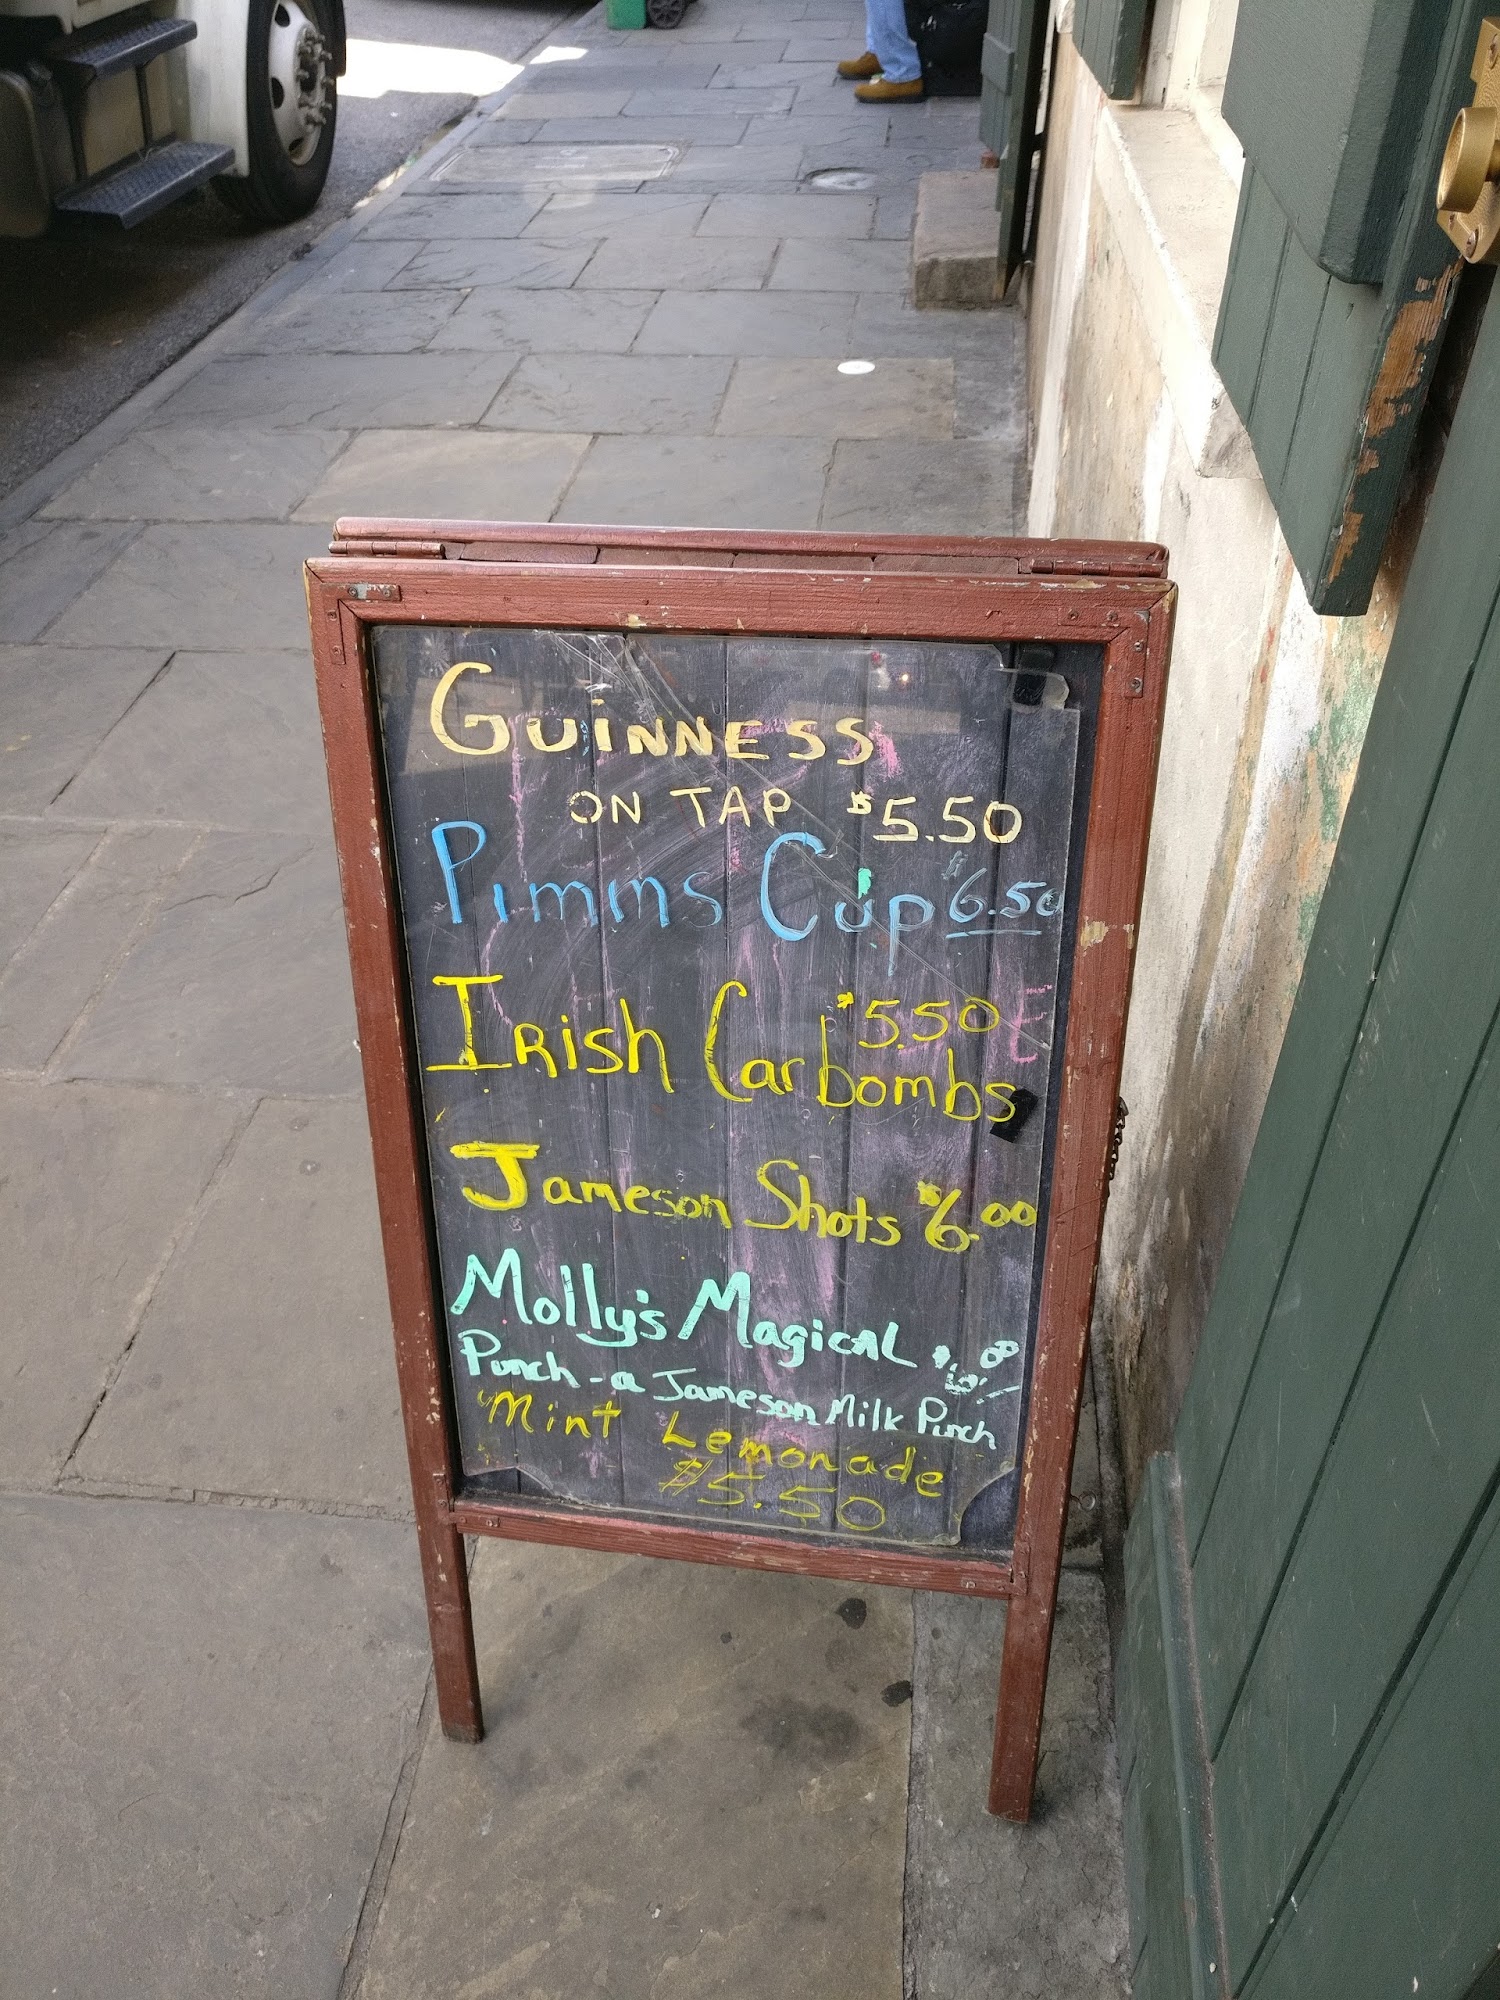 GUINNESS
ON TAP $5.50
Pimms Cup $6.50
IRish Carbombs $5.50
Jameson Shots $6.00
Molly's Magical
Punch - a Jameson Milk Punch
Mint Lemonade
$5.50